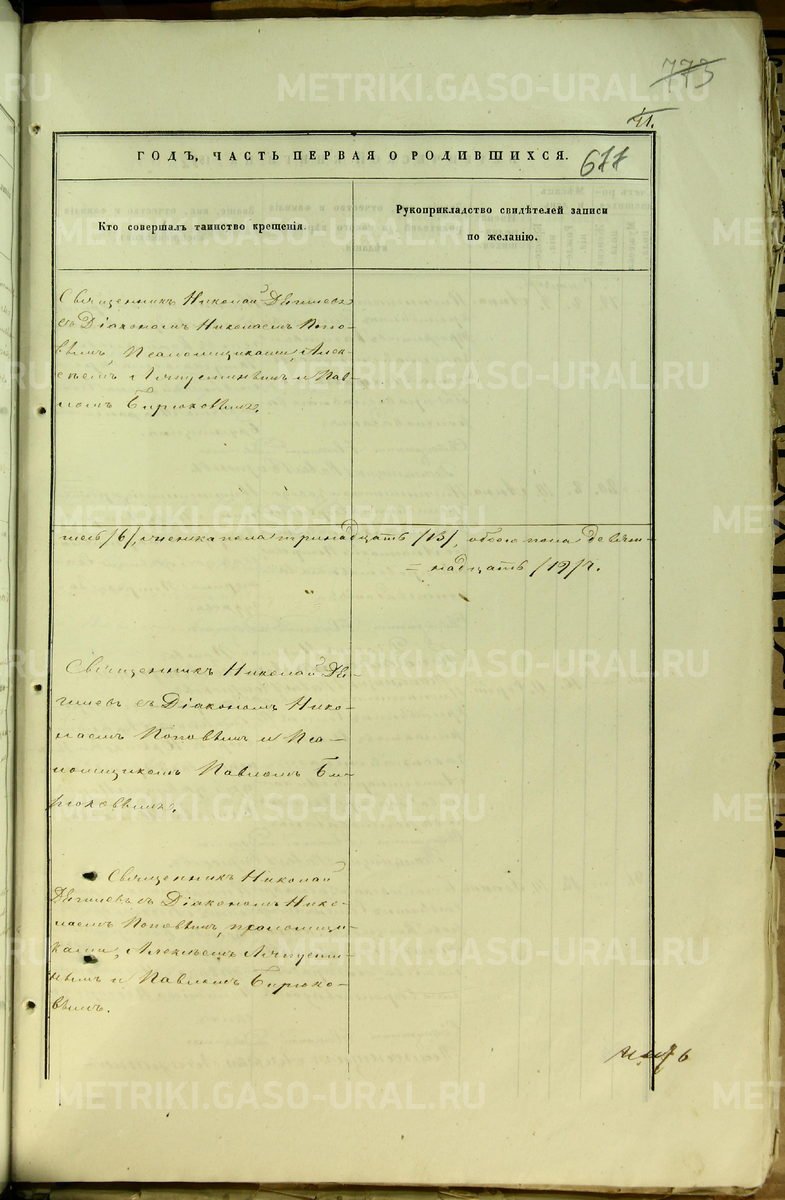 773
41.
ГОДЪ, ЧАСТЬ ПЕРВАЯ О РОДИВШИХСЯ.
677
Кто совершалъ таинство крещенія.
Рукоприкладство свидѣтелей записи
по желанію.
Священникъ Николай
съ Діакономъ Николаемъ Попо-
вымъ, Псаломщиками, Алек-
сѣемъ и Пав-
ломъ Бирюковымъ.
/6/, женска пола тринадцать /13/, обоего пола девят-
= надцать /19/.
Священникъ Николай
съ Діакономъ Нико-
лаемъ Поповымъ и Пса-
ломщикомъ Павломъ Би-
рюковымъ.
Священникъ Николай
съ Діакономъ Нико-
лаемъ Поповымъ, псаломщи-
ками, Алексѣемъ
и Павломъ Бирюко-
вымъ.
METRIKI.GASO-URAL.RU